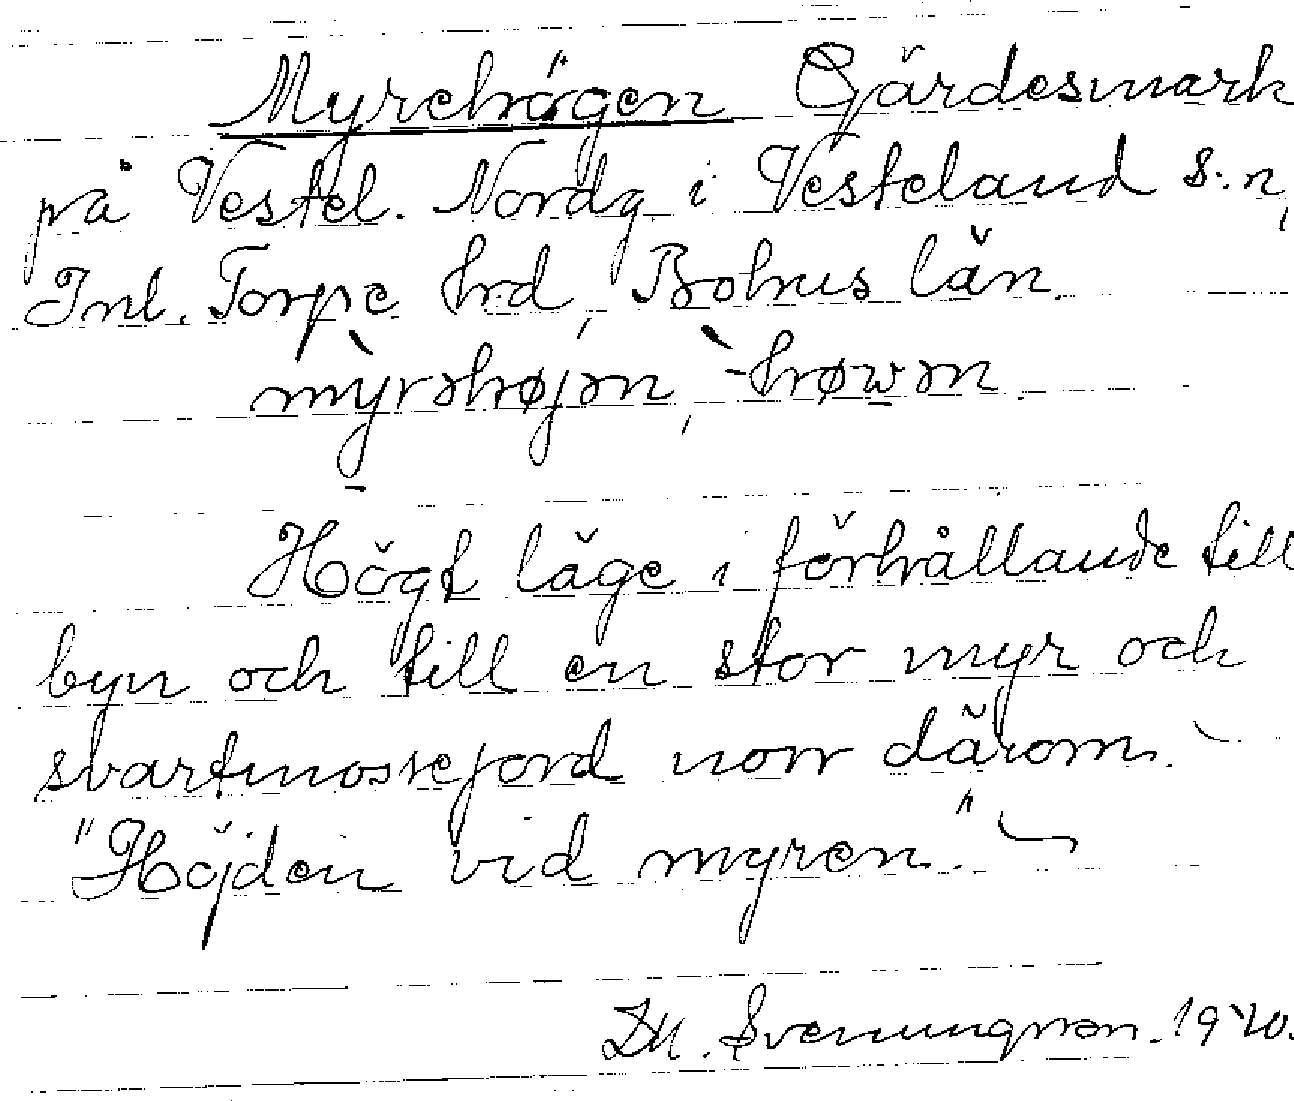 Myrehögen Gärdesmark
på Vestel. Nordg i Vesteland s:n,
Inl. Torpe hrd, Bohus län.
mỳrəhøjən, -̀høwən.
Högt läge i förhållande till
byn och till en stor myr och
svartmossejord norr därom.
"Höjden vid myren."
Svenungsson. 1920.